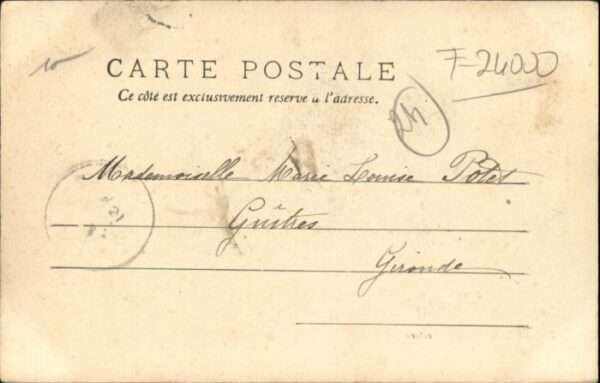 10
F-24000
CARTE POSTALE
Ce côté est exclusivement réservé à l'adresse.
24
Mademoiselle Marie Louise Potet
Guîtres
Gironde
21